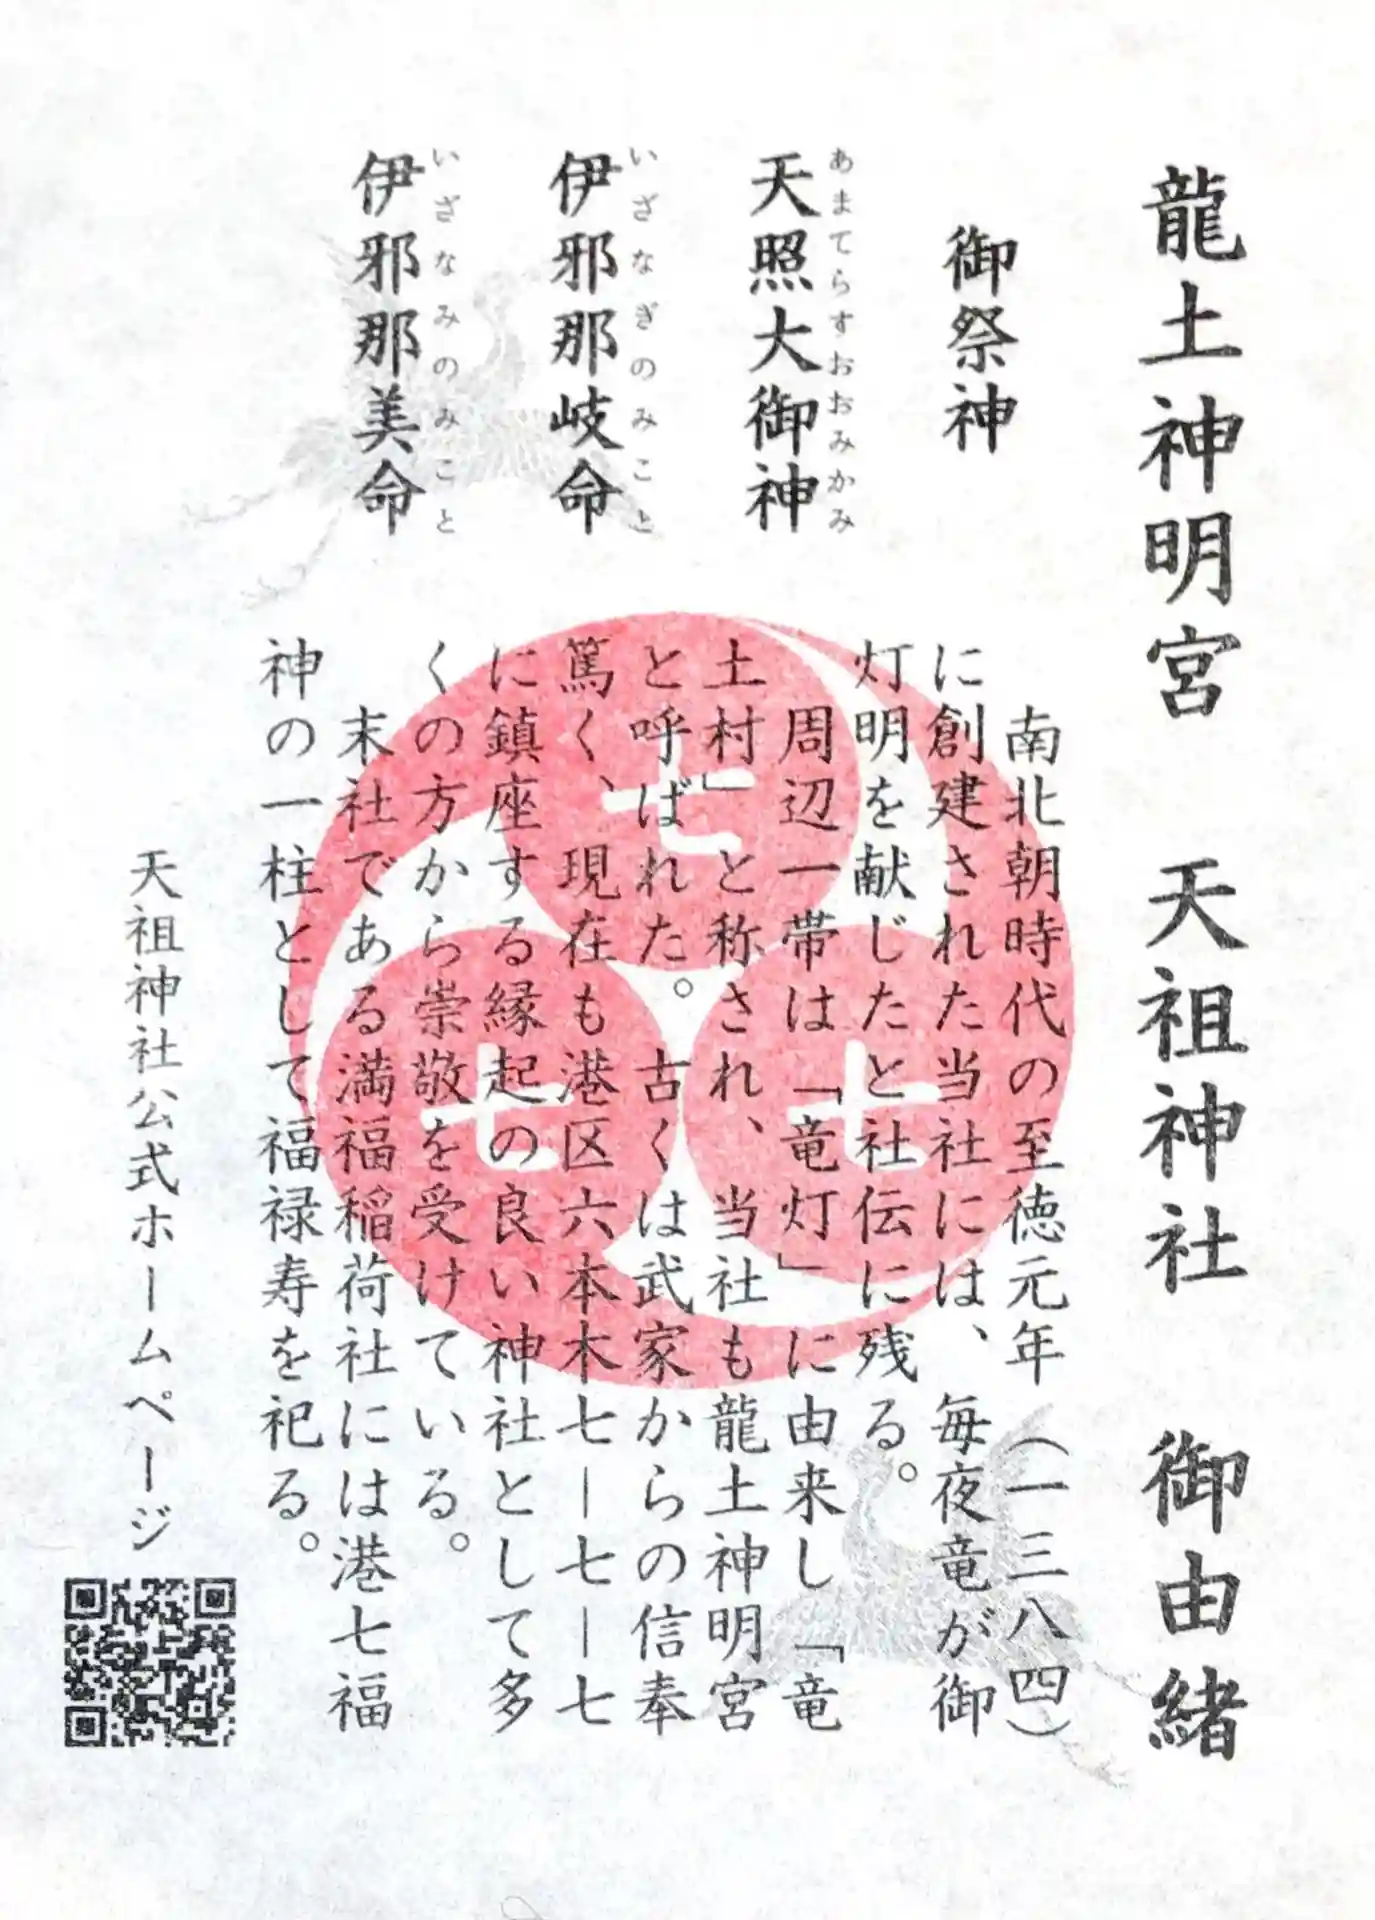 龍土神明宮　天祖神社　御由緒
御祭神
あまてらすおおみかみ
天照大御神
いざなぎのみこと
伊邪那岐命
いざなみのみこと
伊邪那美命
南北朝時代の至徳元年（一三八四）
に創建された当社には、毎夜竜が御
灯明を献じたと社伝に残る。
周辺一帯は「竜灯」に由来し「竜
土村」と称され、当社も龍土神明宮
と呼ばれた。古くは武家からの信奉
篤く、現在も港区六本木七－七－七
に鎮座する縁起の良い神社として多
くの方から崇敬を受けている。
末社である満福稲荷社には港七福
神の一柱として福禄寿を祀る。
七
七
七
天祖神社公式ホームページ